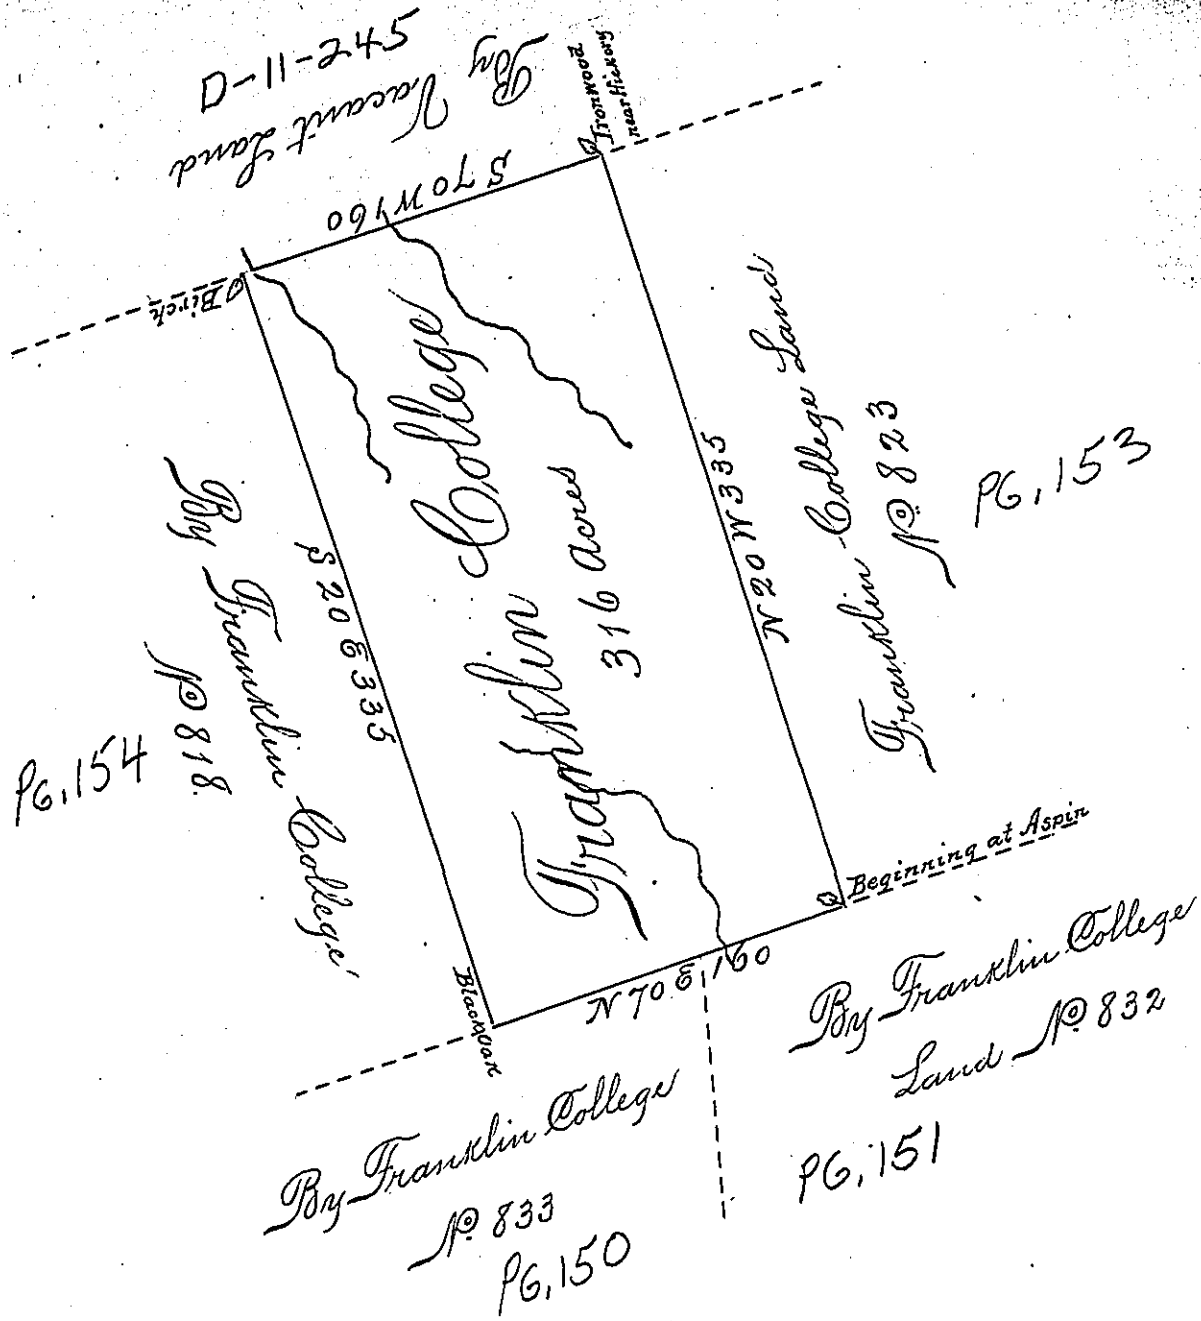 D-11-245
By Vacant Land
Ironwood
near Hickory
S 70 W 160
Birch
Franklin College
316 Acres
S 20 E 335
By Franklin College
No 818.
PG, 154
N 20 W 335
Franklin College Land
No 823
PG, 153
Beginning at Aspin
Blackoak
N 70 E, 160
By Franklin College
Land No 832
PG, 151
By Franklin College
No 833
PG, 150